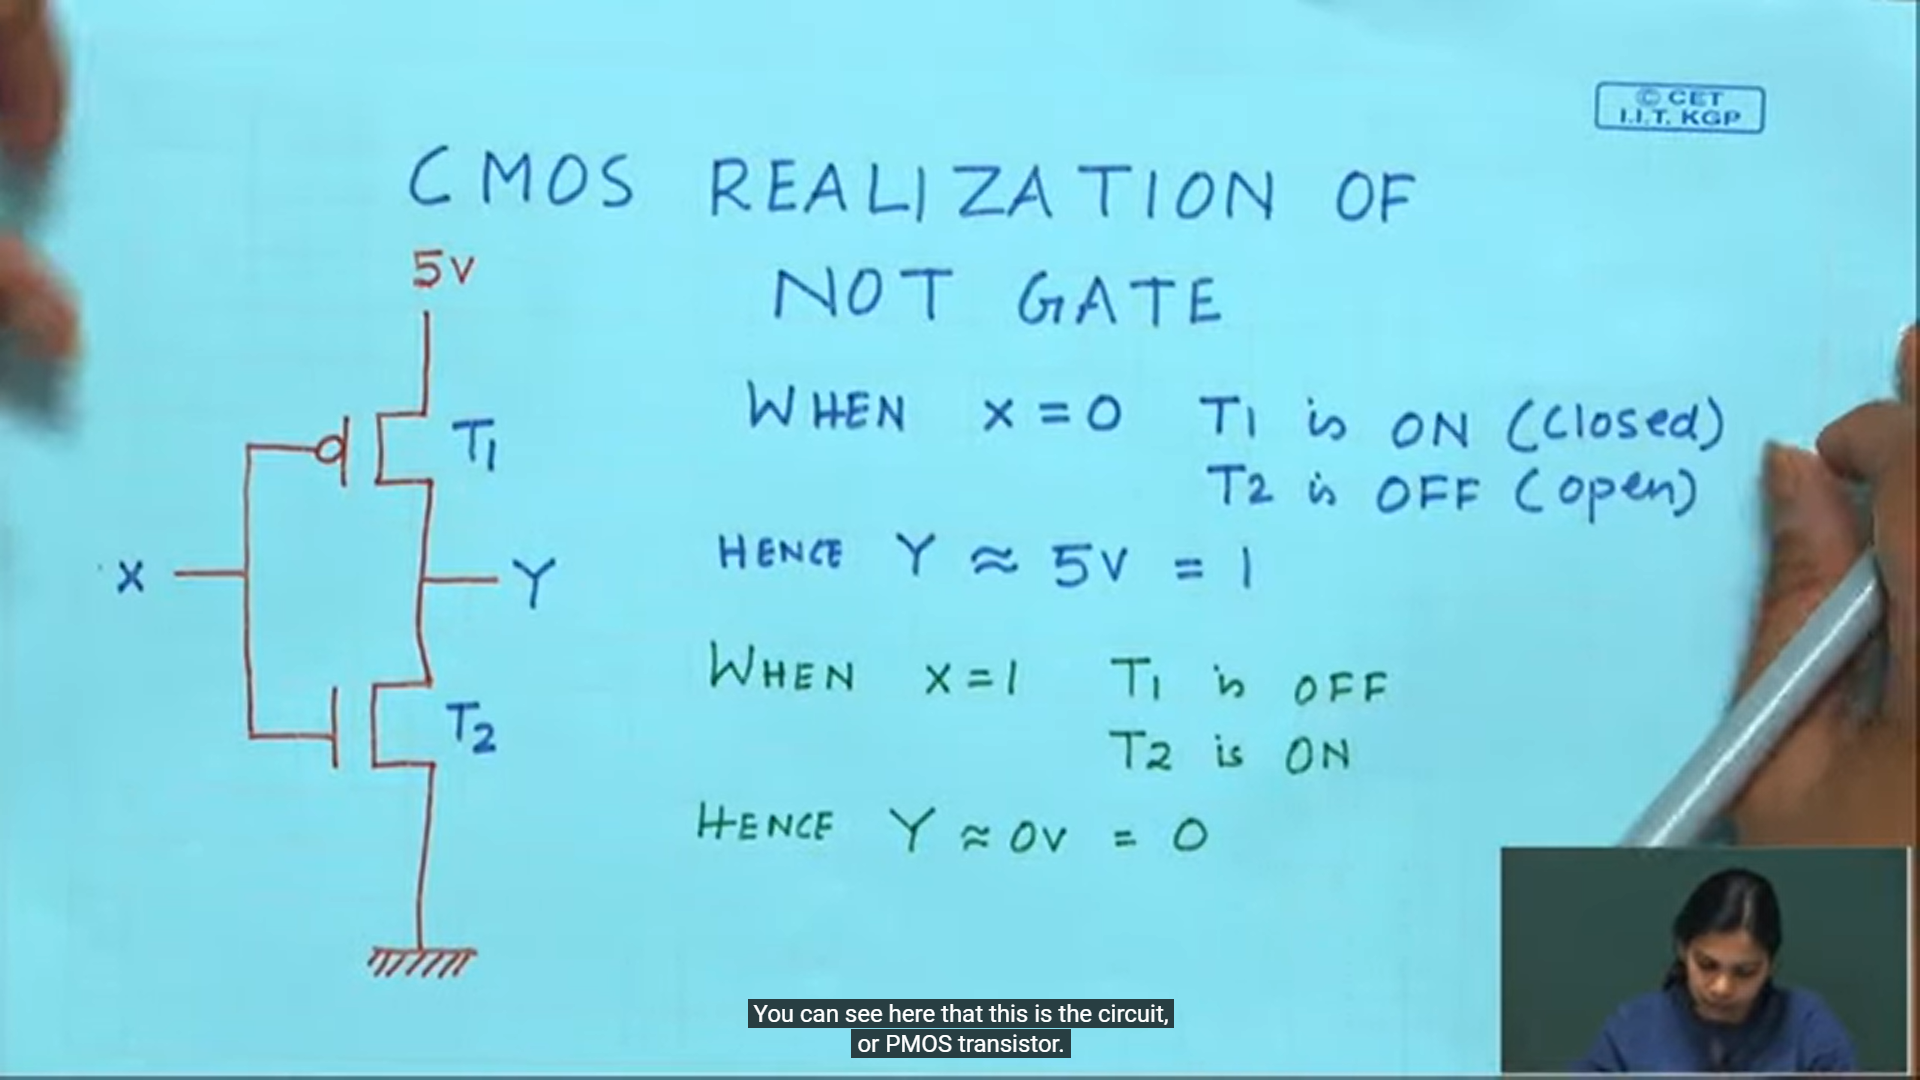 © CET
I.I.T. KGP
CMOS REALIZATION OF
NOT GATE
5V
T1
X
Y
T2
WHEN X = 0 T1 is ON (closed)
T2 is OFF (open)
HENCE Y ≈ 5V = 1
WHEN X = 1 T1 is OFF
T2 is ON
HENCE Y ≈ 0V = 0
You can see here that this is the circuit,
or PMOS transistor.